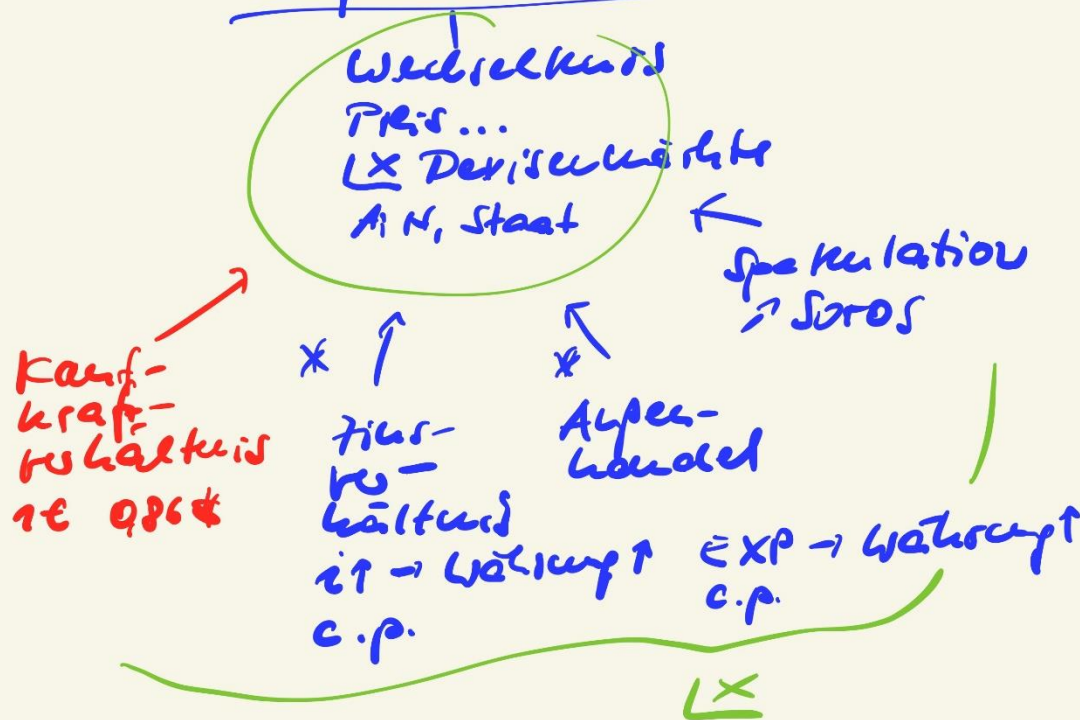 Wechselkurs
Preis...
Devisenmärkte
A, N, Staat
Spekulation
↗ Soros
Kauf-
kraft-
verhältnis
1€ 0,86$
Zins-
ver-
hältnis
i↑ → Währung↑
c.p.
Außen-
handel
EXP → Währung↑
c.p.